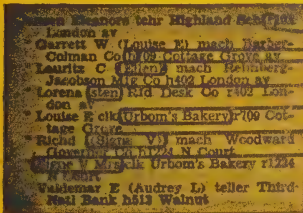 Eleanora tchr Highland
London av
Garrett W (Louise E) mach Barber-
Colman Co h709 Cottage Grove av
Lauritz C (Ellen) mach Rehnberg-
Jacobson Mfg Co h402 London av
Lorena sten Rfd Desk Co r402 Lon-
don av
Louise E clk Urbom's Bakery r709 Cot-
tage Grove
Richd (Signe V) mach Woodward
Governor Co h1224 N Court
Signe V Mrs clk Urbom's Bakery r1224
N Court
Valdemar E (Audrey L) teller Third
Natl Bank h513 Walnut